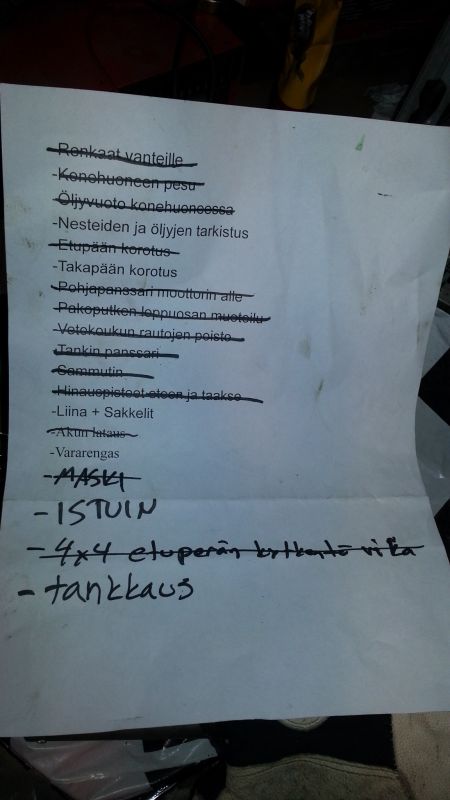 -Renkaat vanteille
-Konehuoneen pesu
-Öljyvuoto konehuoneessa
-Nesteiden ja öljyjen tarkistus
-Etupään korotus
-Takapään korotus
-Pohjapanssari moottorin alle
-Pakoputken loppuosan muotoilu
-Vetokoukun rautojen poisto
-Tankin panssari
-Sammutin
-Hinauspisteet eteen ja taakse
-Liina + Sakkelit
-Akun lataus
-Vararengas
-MASKI
-ISTUIN
-4x4 etuperän kytkentä vika
-tankkaus